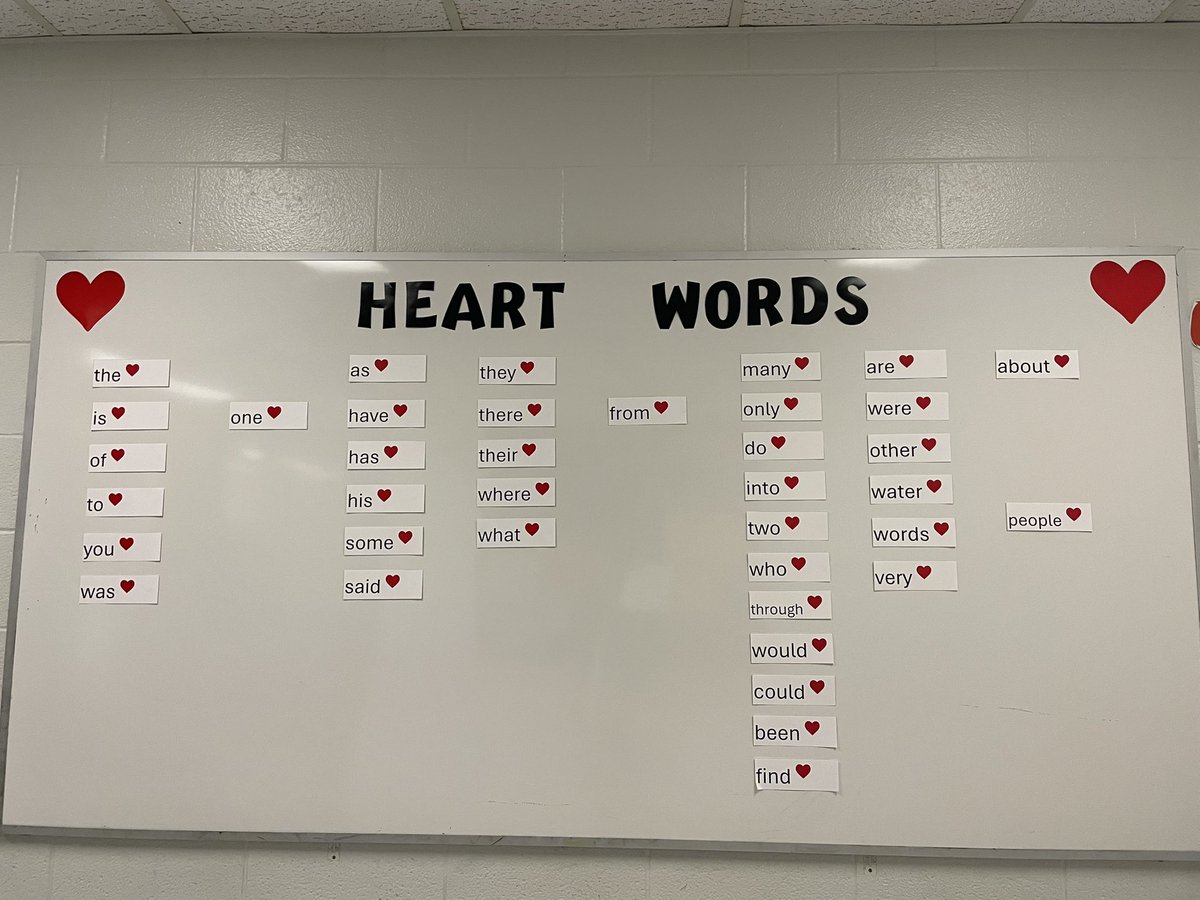 HEART WORDS
the
is
of
to
you
was
one
as
have
has
his
some
said
they
there
their
where
what
from
many
only
do
into
two
who
through
would
could
been
find
are
were
other
water
words
very
about
people